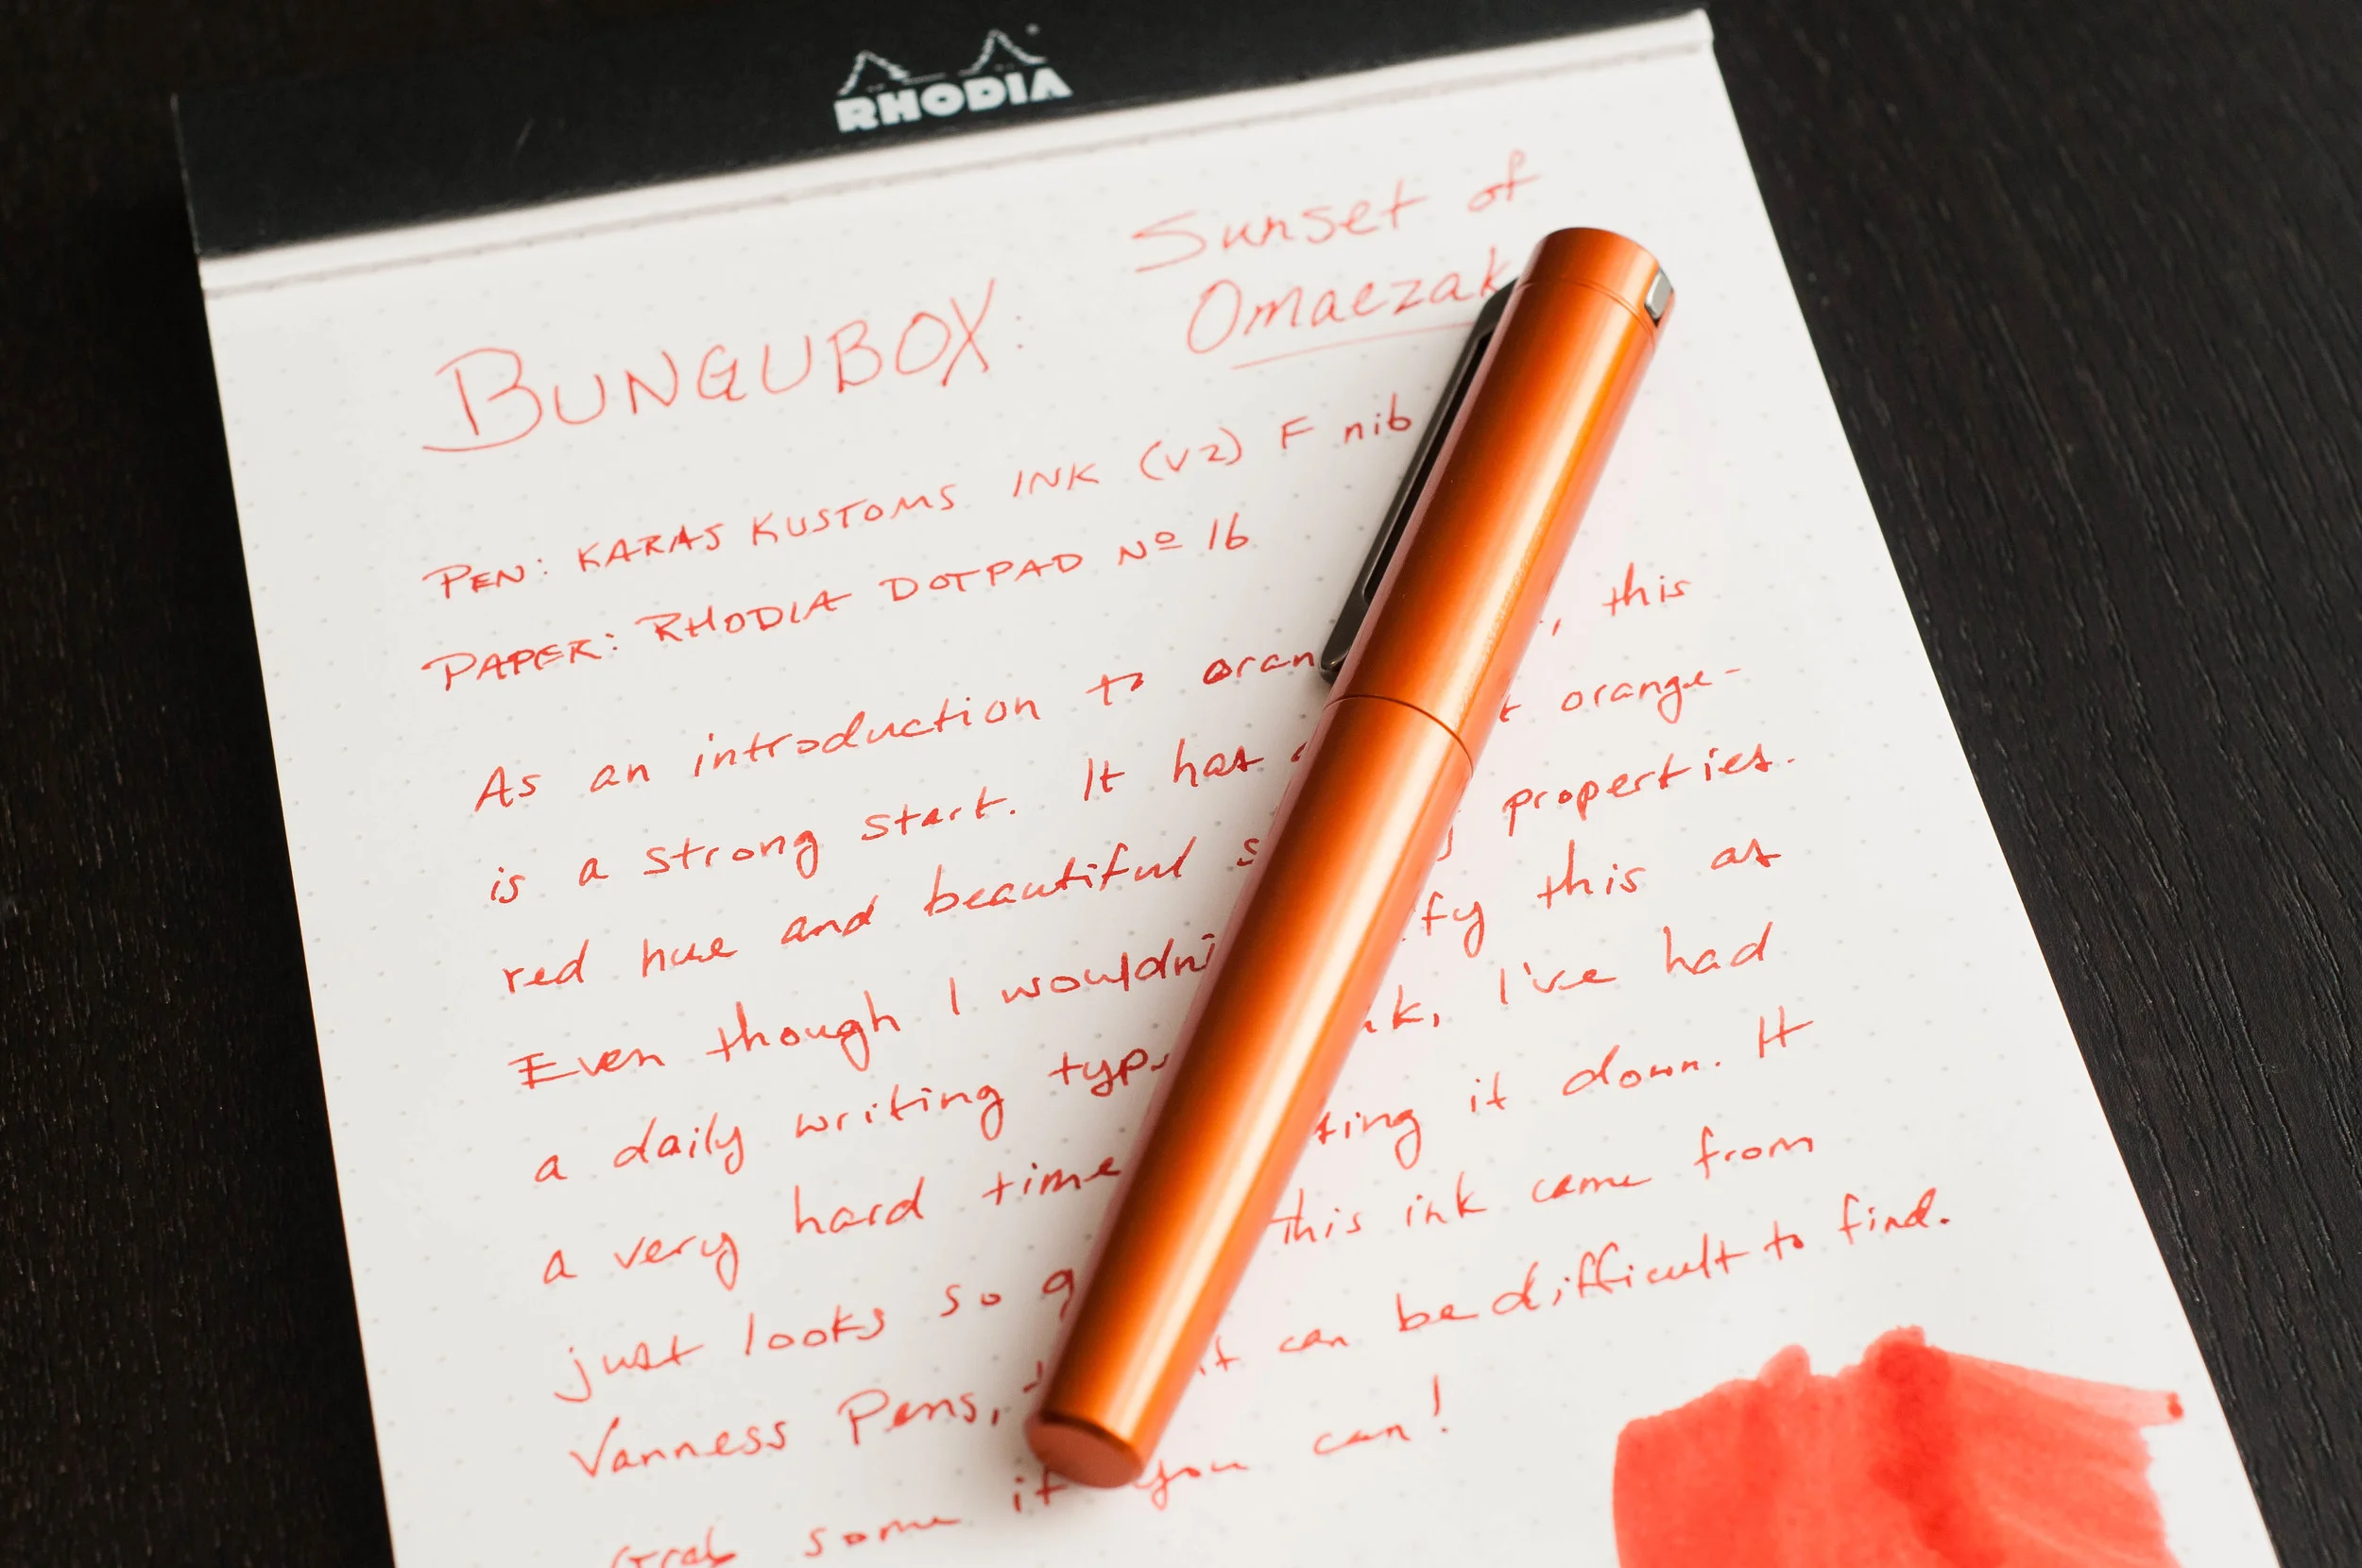 RHODIA
Sunset of
BUNGUBOX:
PEN: KARAS KUSTOMS INK (V2) F nib
PAPER: RHODIA DOTPAD Nº 16
As an introduction to , this
is a strong start. It has orange-
red hue and beautiful properties.
Even though I this as
a daily writing I've had
a very hard time it down. It
just looks so this ink came from
Vanness Pens, it can be difficult to find.
Grab some if you can!